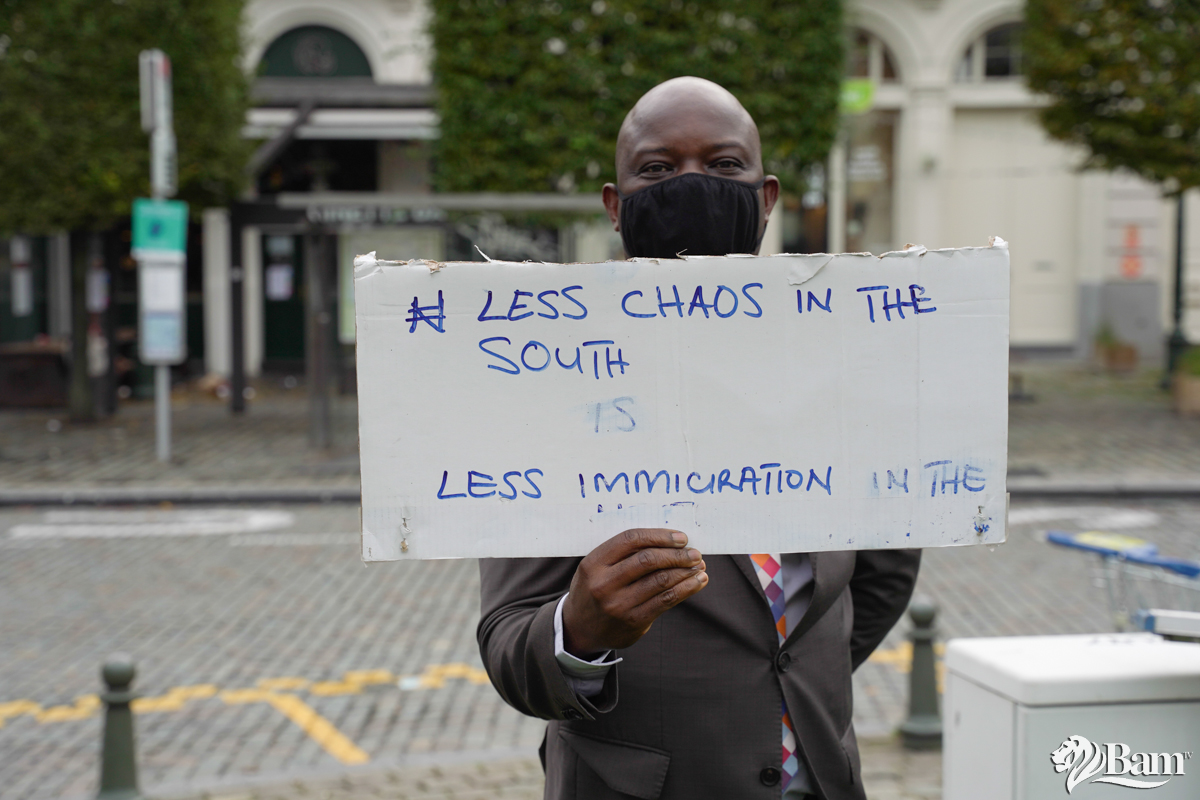 # LESS CHAOS IN THE
SOUTH
IS
LESS IMMIGRATION IN THE
Bam TV